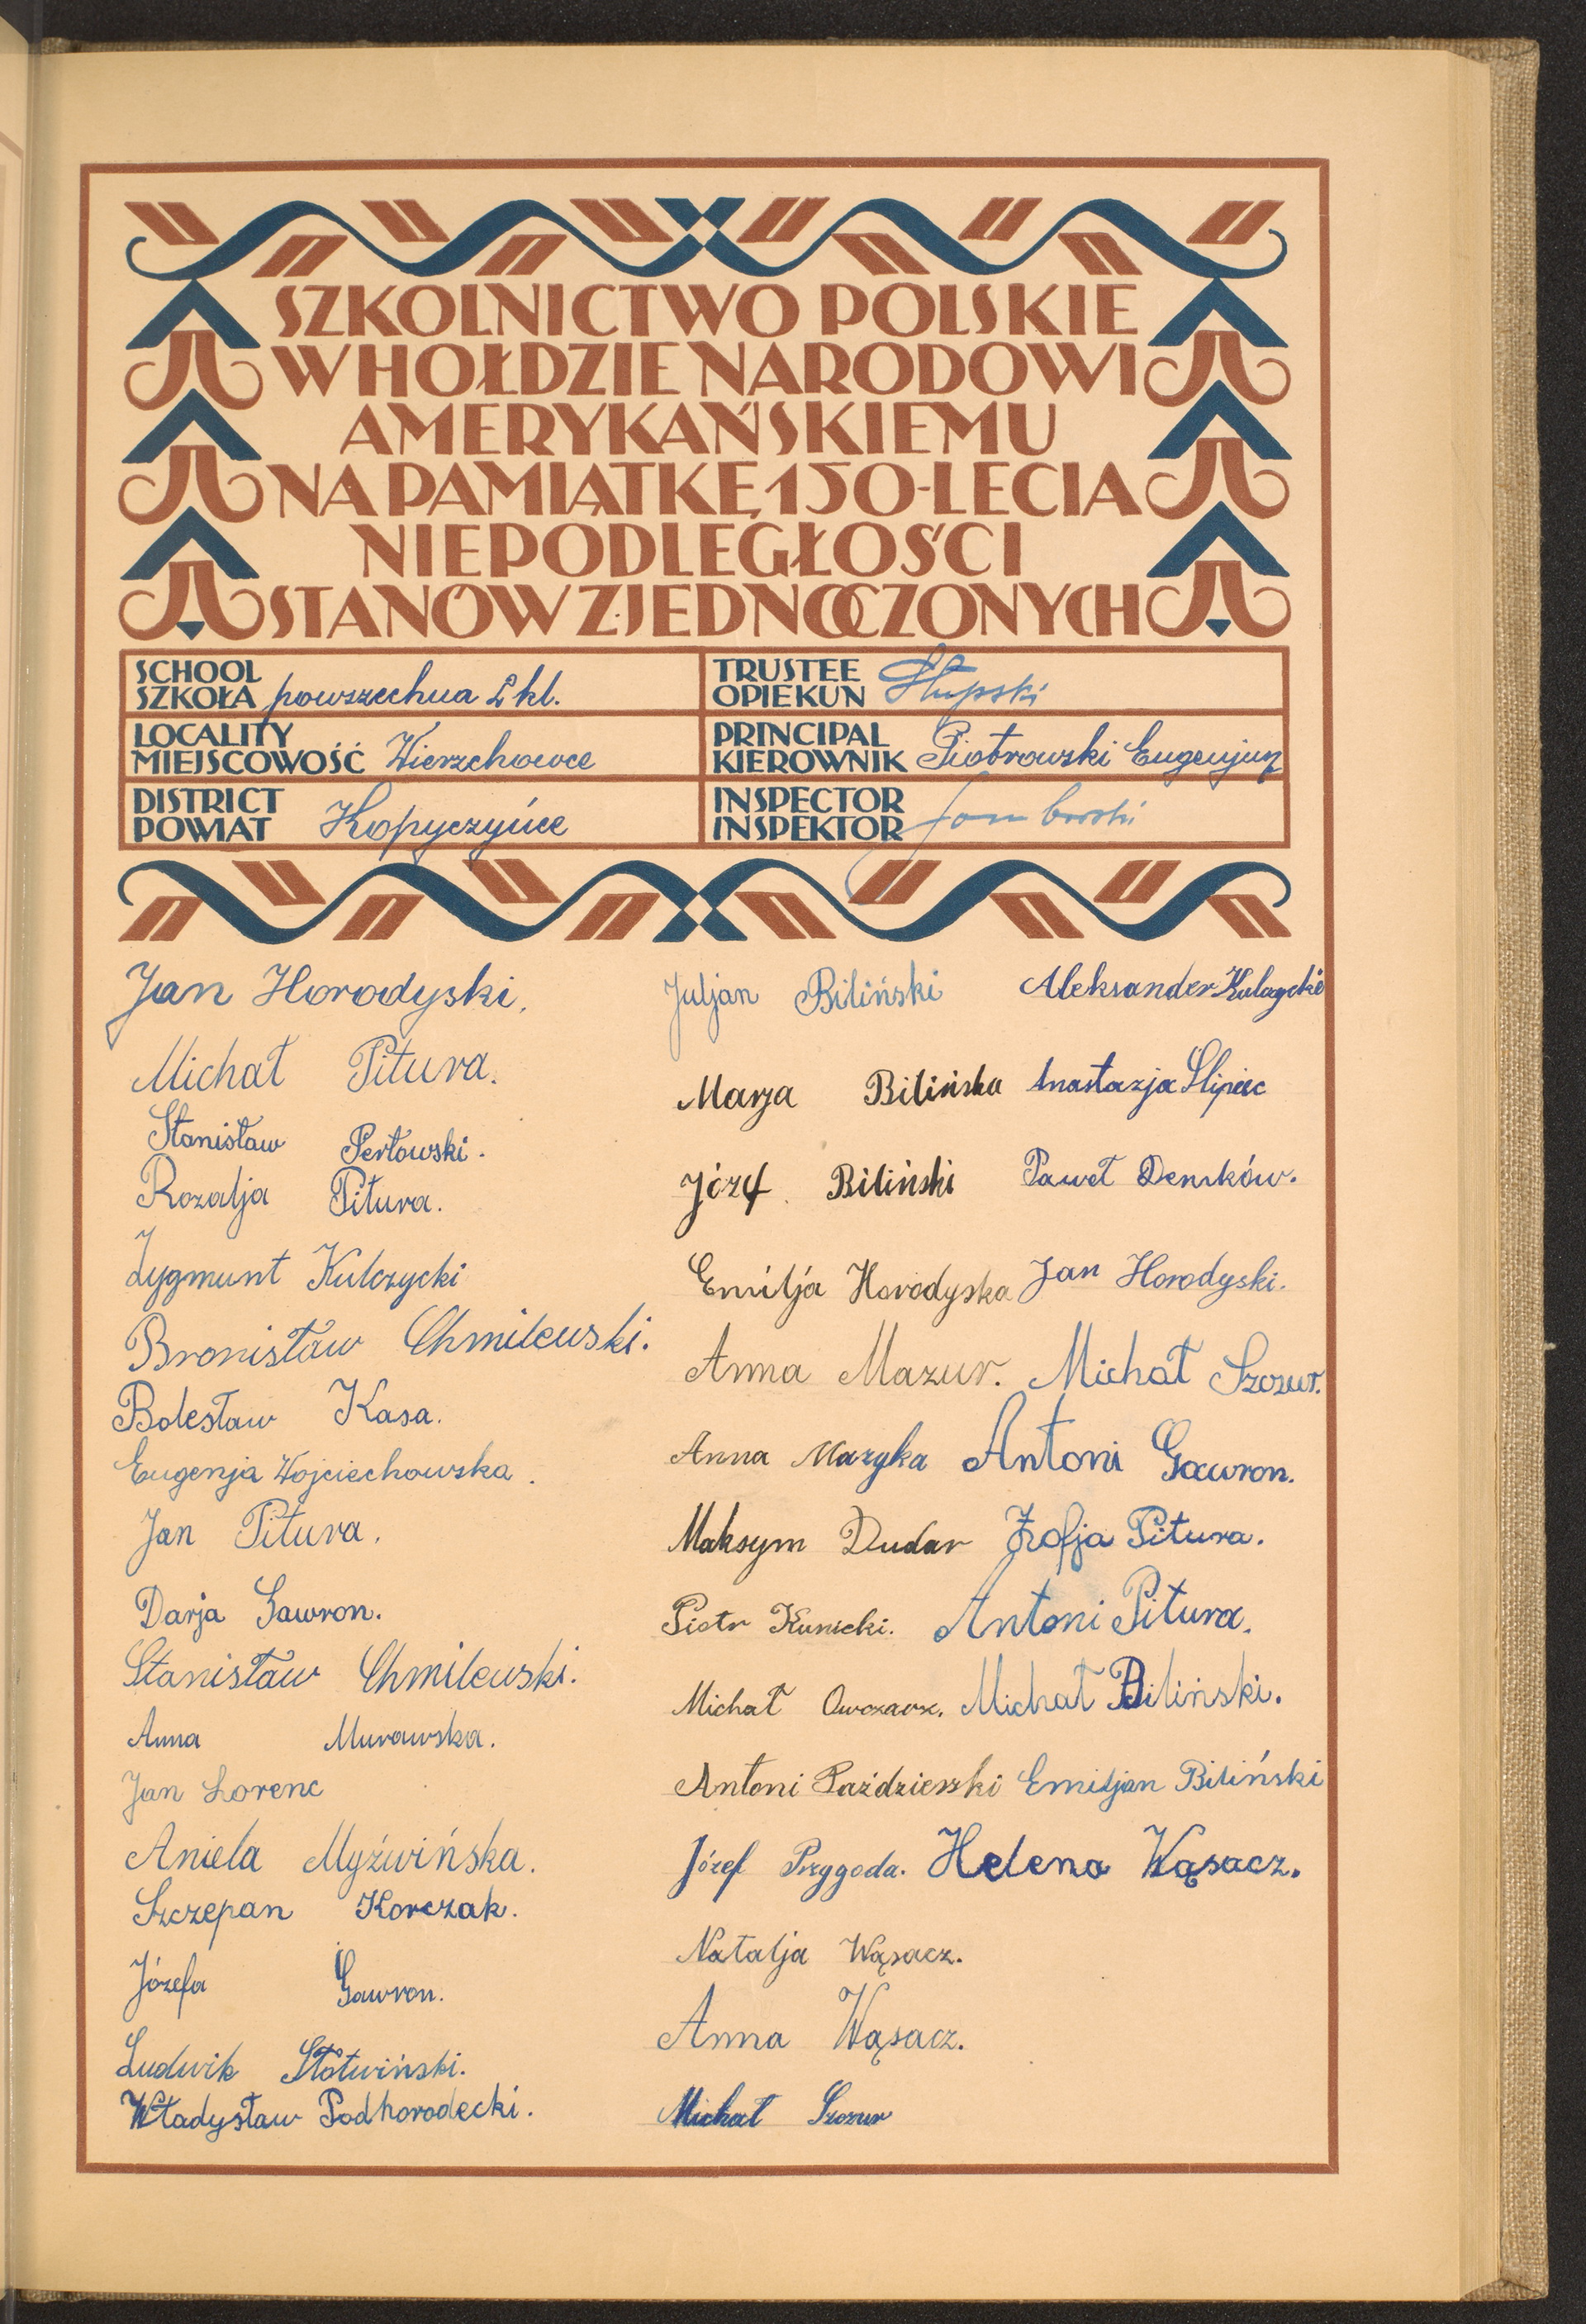 SZKOLNICTWO POLSKIE
W HOŁDZIE NARODOWI
AMERYKAŃSKIEMU
NA PAMIĄTKĘ 150-LECIA
NIEPODLEGŁOŚCI
STANÓW ZJEDNOCZONYCH
SCHOOL
SZKOŁA powszechna 2 kl.
LOCALITY
MIEJSCOWOŚĆ Wierzchowce
DISTRICT
POWIAT Kopyczyńce
TRUSTEE
OPIEKUN Słupski
PRINCIPAL
KIEROWNIK Piotrowski Eugenjusz
INSPECTOR
INSPEKTOR
Jan Horodyski.
Michał Pitura.
Stanisław Perłowski.
Rozalja Pitura.
Zygmunt Kulczycki
Bronisław Chmilewski.
Bolesław Kasa.
Eugenja Wojciechowska.
Jan Pitura.
Darja Gawron.
Stanisław Chmilewski.
Anna Murawska.
Jan Lorenc
Aniela Myźwińska.
Szczepan Korczak.
Józefa Gawron.
Ludwik Słotwiński.
Władysław Podhorodecki.
Juljan Biliński
Marja Bilińska
Józef Biliński
Emilja Horodyska
Anna Mazur.
Anna Mazyka
Maksym Dudar
Piotr Kunicki.
Michał Owczarz.
Antoni Paździerski
Józef Przygoda.
Natalja Wąsacz.
Anna Wąsacz.
Michał Szczur
Aleksander
Anastazja Slipiec
Paweł Demków.
Jan Horodyski.
Michał Szczur.
Antoni Gawron.
Zofja Pitura.
Antoni Pitura.
Michał Biliński.
Emiljan Biliński
Helena Wąsacz.